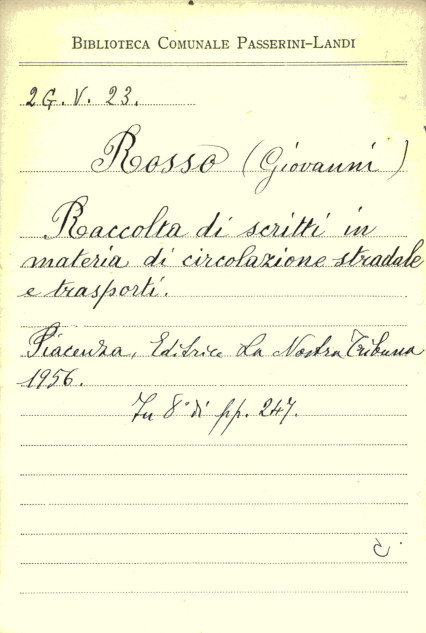 BIBLIOTECA COMUNALE PASSERINI-LANDI
2G. V. 23.
Rosso (Giovanni)
Raccolta di scritti in
materia di circolazione stradale
e trasporti.
Piacenza, Editrice La Nostra Tribuna
1956.
In 8° di pp. 247.
C.